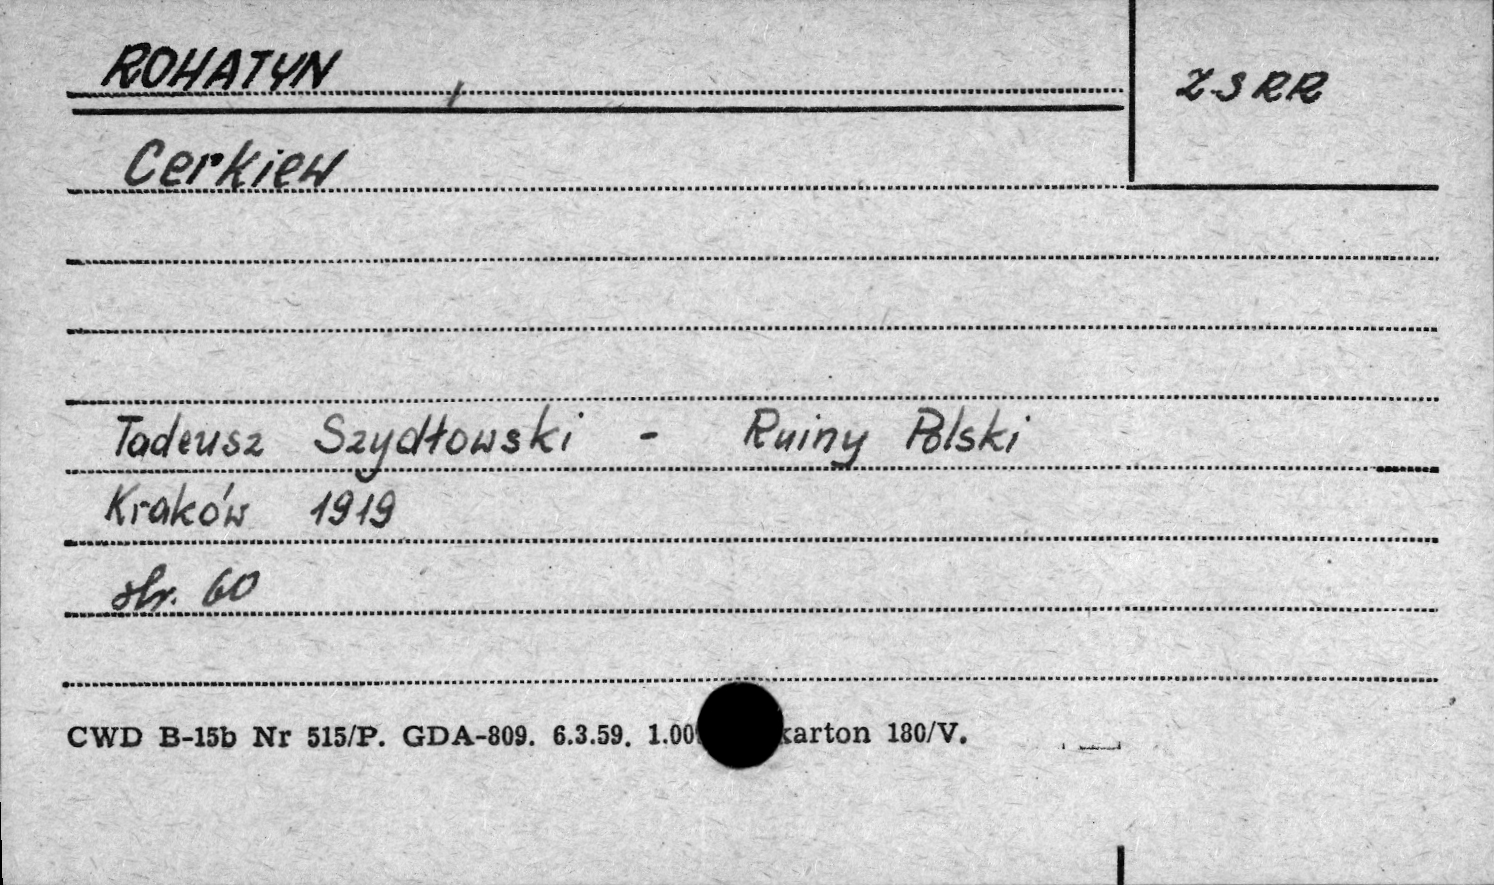 ROHATYN
ZSRR
Cerkiew
Tadeusz Szydłowski - Ruiny Polski
Kraków 1919
str. 60
CWD B-15b Nr 515/P. GDA-809. 6.3.59. 1.00 karton 180/V.